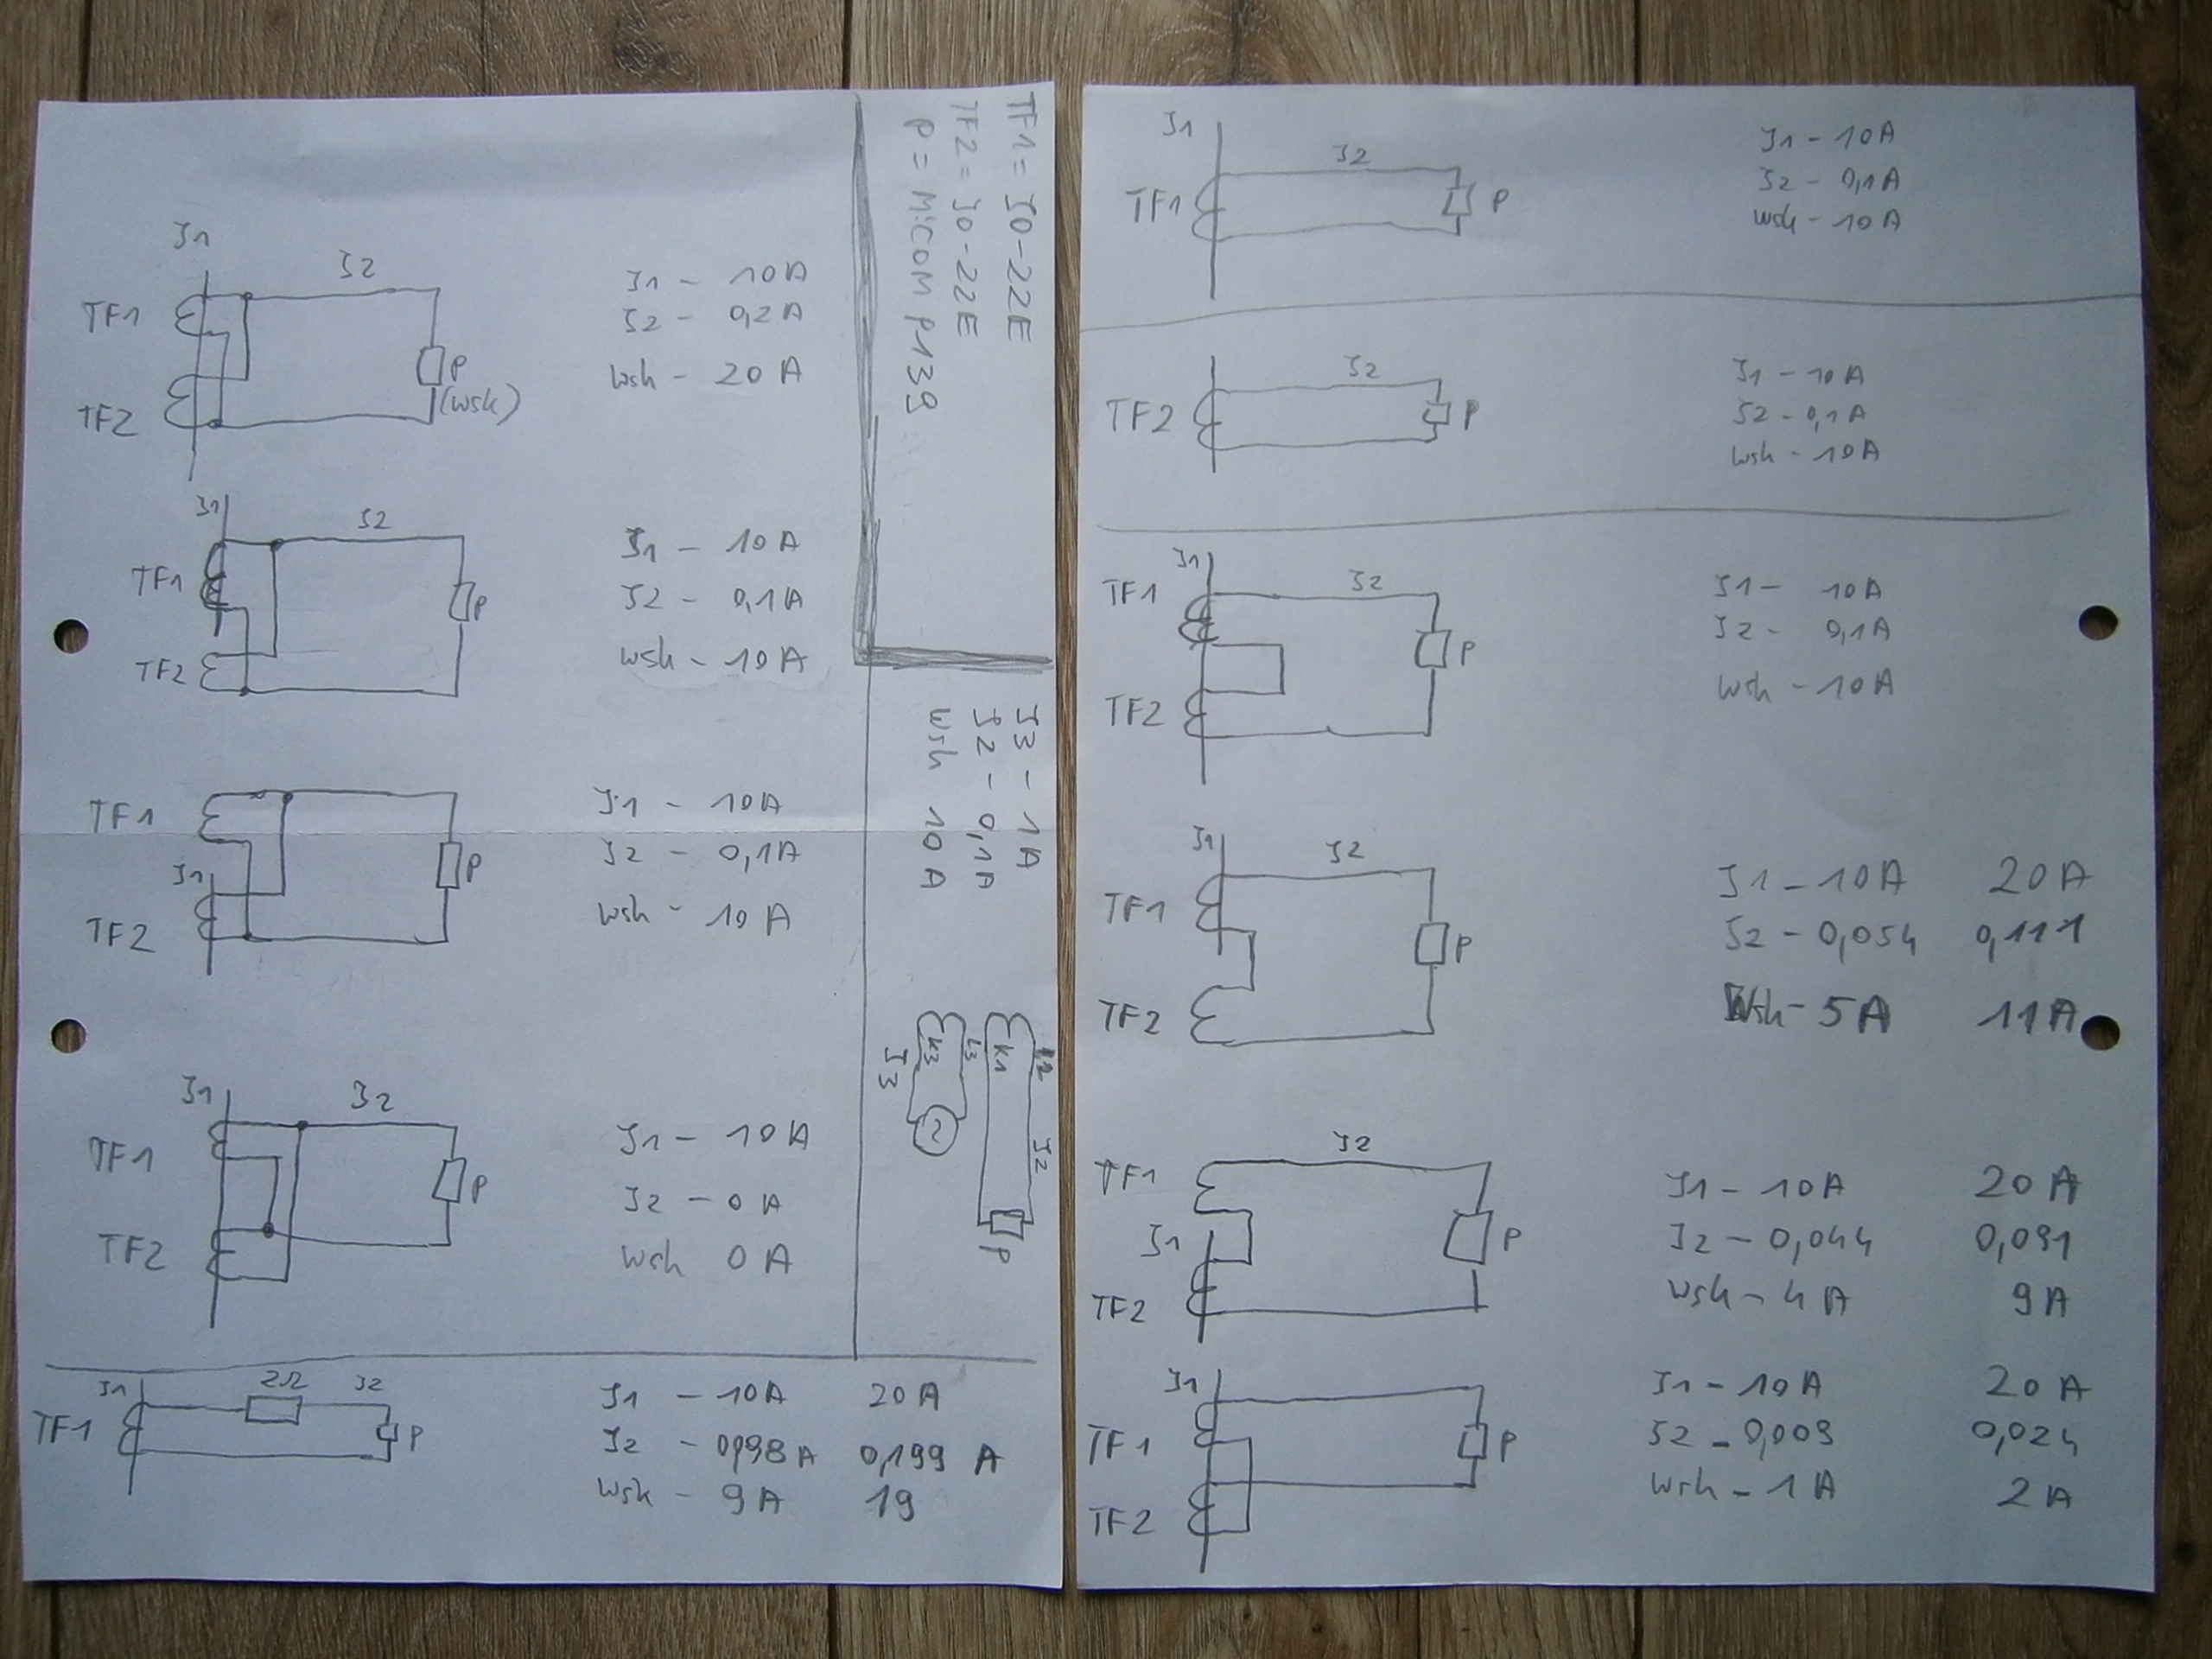 J1
J2
TF1
TF2
P
(wsk)
J1 - 10A
J2 - 0,2A
wsk - 20 A
J1
J2
TF1
TF2
P
J1 - 10 A
J2 - 0,1A
wsk - 10 A
TF1
J1
TF2
P
J1 - 10A
J2 - 0,1A
wsk - 10 A
J1
J2
TF1
TF2
P
J1 - 10 A
J2 - 0 A
wsk 0 A
J1
2Ω
J2
TF1
P
J1 - 10A 20A
J2 - 0,098 A 0,199 A
wsk - 9A 19
TF1 = J0-22E
TF2 = J0-22E
P = MiCOM P139
J3 - 1A
J2 - 0,1A
wsk 10 A
L2
K1
L3
K3
J3
J2
P
J1
J2
TF1
P
J1 - 10A
J2 - 0,1A
wsk - 10A
J2
TF2
P
J1 - 10A
J2 - 0,1A
wsk - 10A
J1
J2
TF1
TF2
P
J1 - 10A
J2 - 0,1A
wsk - 10A
J1
J2
TF1
TF2
P
J1 - 10A 20A
J2 - 0,054 0,111
Wsk - 5A 11A
J2
TF1
J1
TF2
P
J1 - 10A 20A
J2 - 0,044 0,091
wsk - 4A 9A
J1
TF1
TF2
P
J1 - 10A 20A
J2 - 0,009 0,024
wsk - 1A 2A